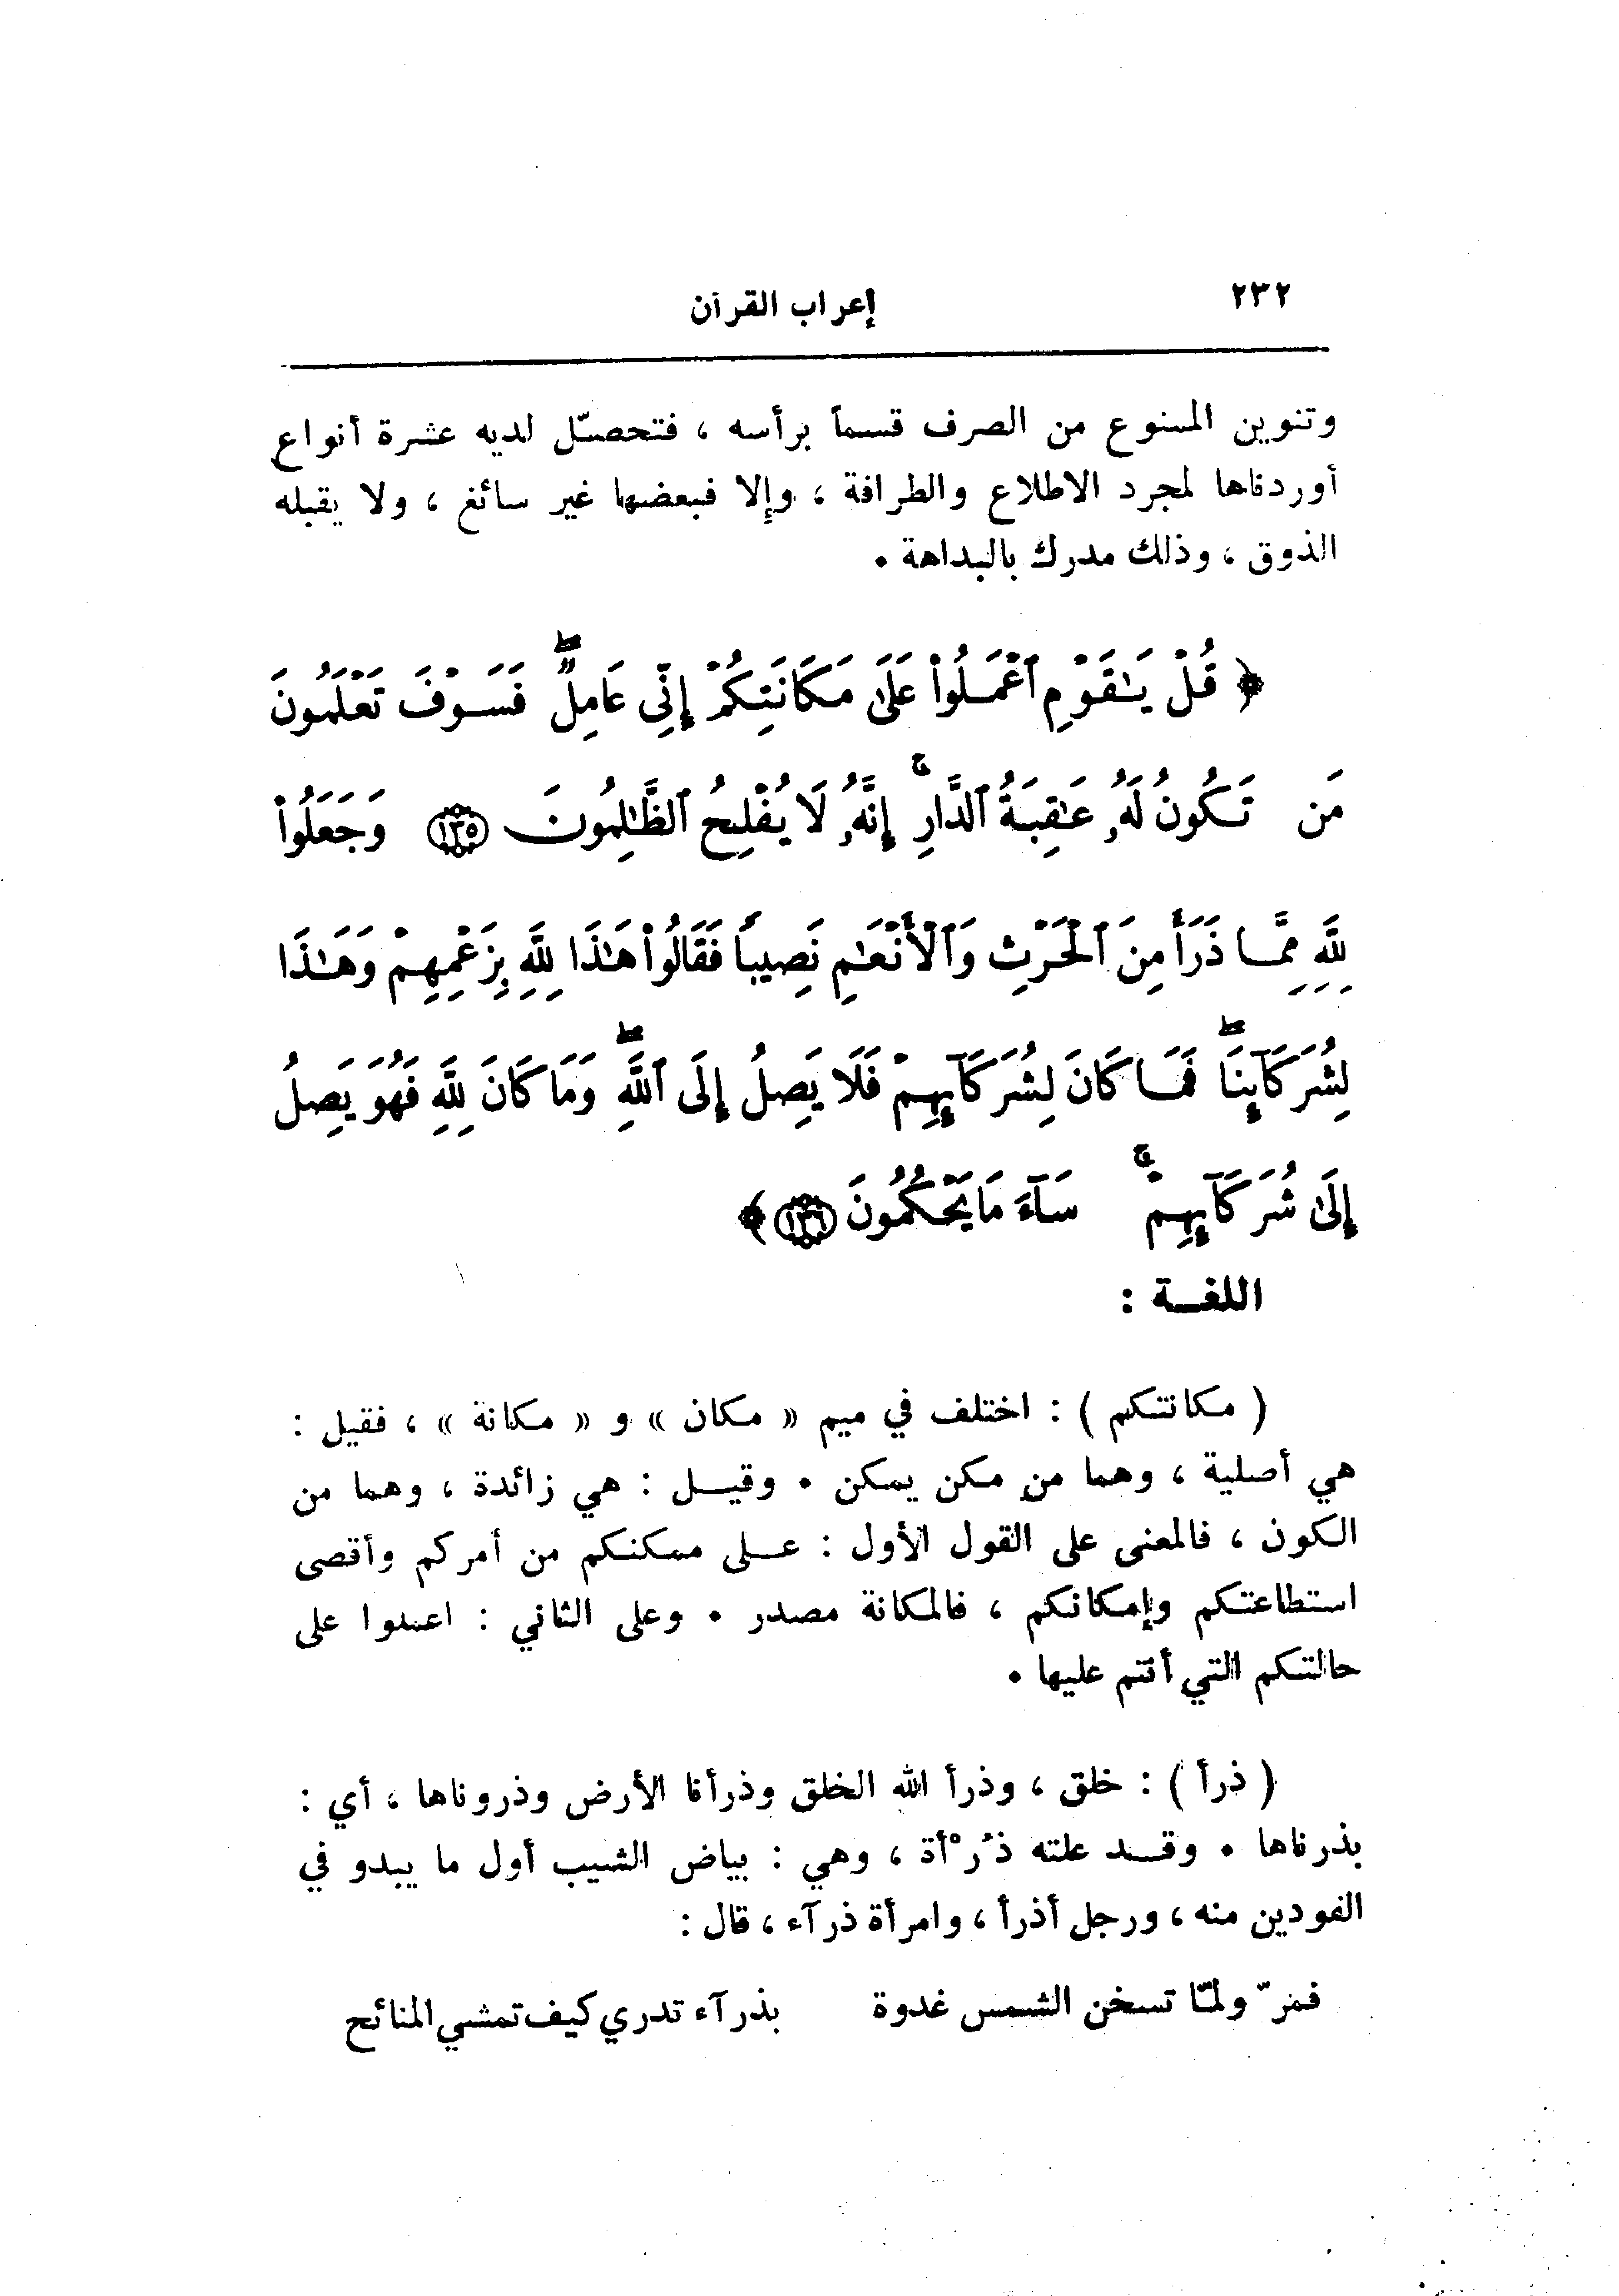 ٢٣٢
إعراب القرآن
وتنوين الممنوع من الصرف قسماً برأسه ، فتحصّل لديه عشرة أنواع
أوردناها لمجرد الاطلاع والطرافة ، وإلا فبعضها غير سائغ ، ولا يقبله
الذوق ، وذلك مدرك بالبداهة .
﴿ قُلْ يَٰقَوْمِ ٱعْمَلُوا۟ عَلَىٰ مَكَانَتِكُمْ إِنِّى عَامِلٌ ۖ فَسَوْفَ تَعْلَمُونَ
مَن تَكُونُ لَهُۥ عَٰقِبَةُ ٱلدَّارِ ۚ إِنَّهُۥ لَا يُفْلِحُ ٱلظَّٰلِمُونَ ١٣٥ وَجَعَلُوا۟
لِلَّهِ مِمَّا ذَرَأَ مِنَ ٱلْحَرْثِ وَٱلْأَنْعَٰمِ نَصِيبًا فَقَالُوا۟ هَٰذَا لِلَّهِ بِزَعْمِهِمْ وَهَٰذَا
لِشُرَكَآئِنَا ۖ فَمَا كَانَ لِشُرَكَآئِهِمْ فَلَا يَصِلُ إِلَى ٱللَّهِ ۖ وَمَا كَانَ لِلَّهِ فَهُوَ يَصِلُ
إِلَىٰ شُرَكَآئِهِمْ ۚ سَآءَ مَا يَحْكُمُونَ ١٣٦ ﴾
اللغـة :
( مكانتكم ) : اختلف في ميم « مكان » و « مكانة » ، فقيل :
هي أصلية ، وهما من مكن يمكن . وقيـل : هي زائدة ، وهما من
الكون ، فالمعنى على القول الأول : عـلى ممكنكم من أمركم وأقصى
استطاعتكم وإمكانكم ، فالمكانة مصدر . وعلى الثاني : اعملوا على
حالتكم التي أنتم عليها .
( ذرأ ) : خلق ، وذرأ الله الخلق وذرأنا الأرض وذروناها ، أي :
بذرناها . وقـد علته ذُرْأة ، وهي : بياض الشيب أول ما يبدو في
الفودين منه ، ورجل أذرأ ، وامرأة ذرآء ، قال :
فمرّ ولمّا تسخن الشمس غدوة بذرآء تدري كيف تمشي المنائح